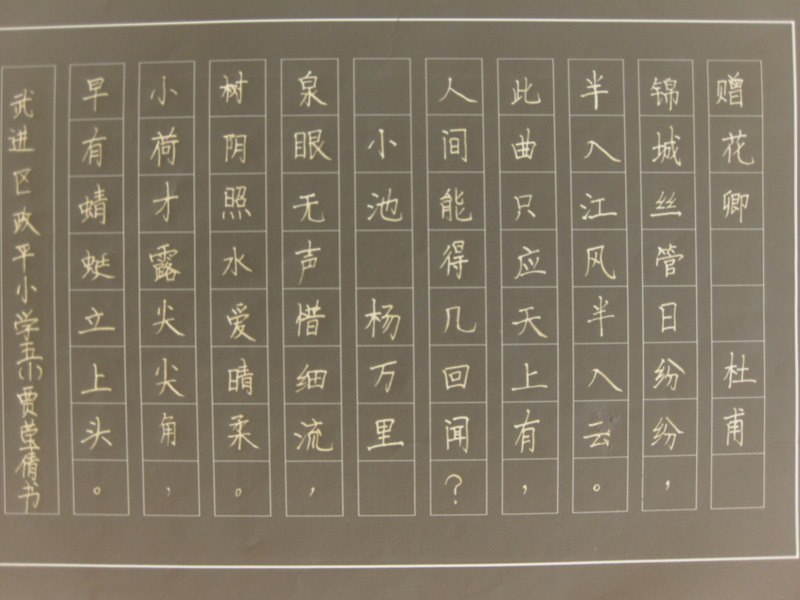 赠花卿 杜甫
锦城丝管日纷纷，
半入江风半入云。
此曲只应天上有，
人间能得几回闻？
小池 杨万里
泉眼无声惜细流，
树阴照水爱晴柔。
小荷才露尖尖角，
早有蜻蜓立上头。
武进区政平小学五(1)贾莹倩书